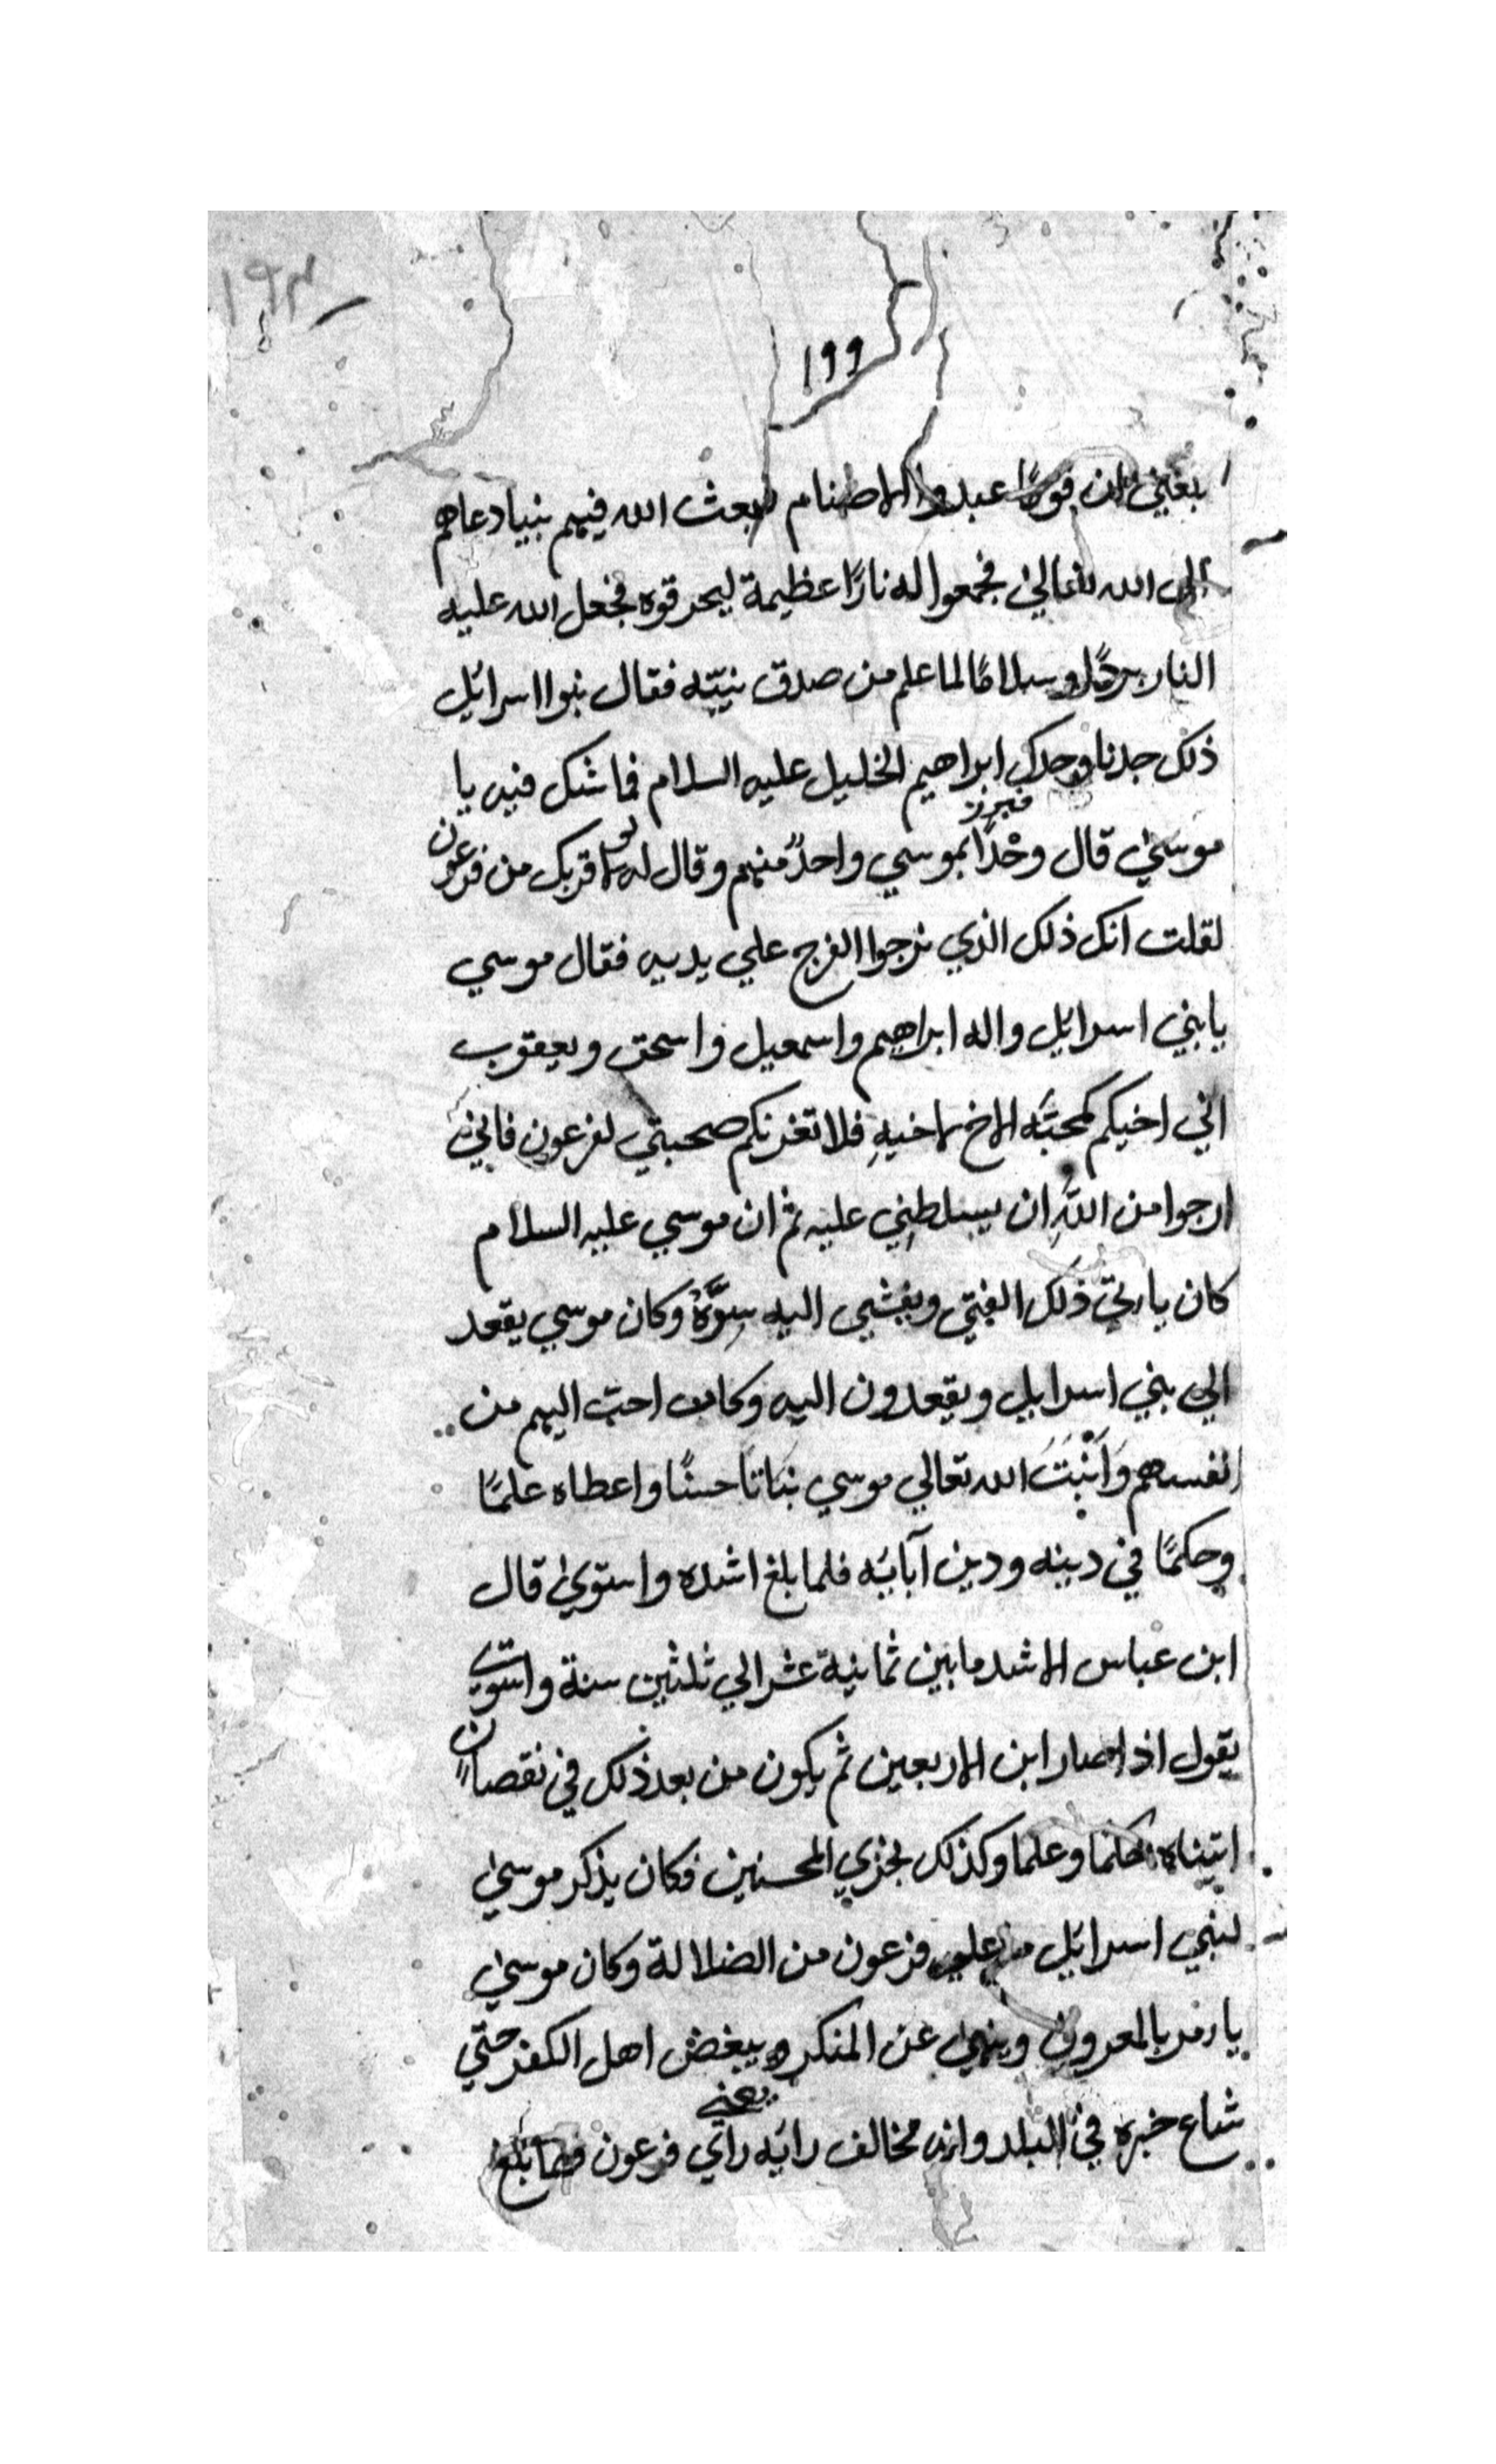 ١٩٣
١٩٩
بلغني ان قومًا عبدوا الاصنام فبعث الله فيهم نبيا دعاهم
الى الله تعالي فجمعوا له نارًا عظيمة ليحرقوه فجعل الله عليه
النار بردًا وسلامًا لما علم من صدق نيته فقال بنوا اسرائيل
ذلك جدنا وجدك ابراهيم الخليل عليه السلام فما شك فيه يا
موسى قال وخذا بموسي واحدٌ منهم وقال له لو لا قربك من فرعون
لقلت انك ذلك الذي نرجوا الفرج علي يديه فقال موسي
يا بني اسرائيل واله ابراهيم واسمعيل واسحق ويعقوب
اني احبكم كمحبَّه الاخ لاخيهِ فلا تغرنكم صحبتي لفرعون فاني
ارجوا من اللهِ ان يسلطِني عليه ثم ان موسي عليه السلام
كان ياتي ذلك الفتي ويفشي اليه سِرَّهُ وكان موسي يقعد
الي بني اسرايل ويقعدون اليه وكان احبّ اليهم من
انفسهم وَاَنْبَتَ الله تعالي موسي نبَاتًا حسنًا واعطاه علمًا
وحكمًا في دينه ودين آبائه فلما بلغ اشده واستوى قال
ابن عباس الاشد ما بين ثمانية عشر الي ثلثين سنة واستوى
يقول اذا صار ابن الاربعين ثم يكون من بعد ذلك في نقصان
اتيناه حكما وعلما وكذلك نجزي المحسنين فكان يذكر موسى
لبني اسرائيل علي فرعون من الضلالة وكان موسى
يامر بالمعروف وينهى عن المنكر ويبغض اهل الكفر حتي
شاع خبره في البلد وانه مخالف رايه راي يعني فرعون فلما بلغ